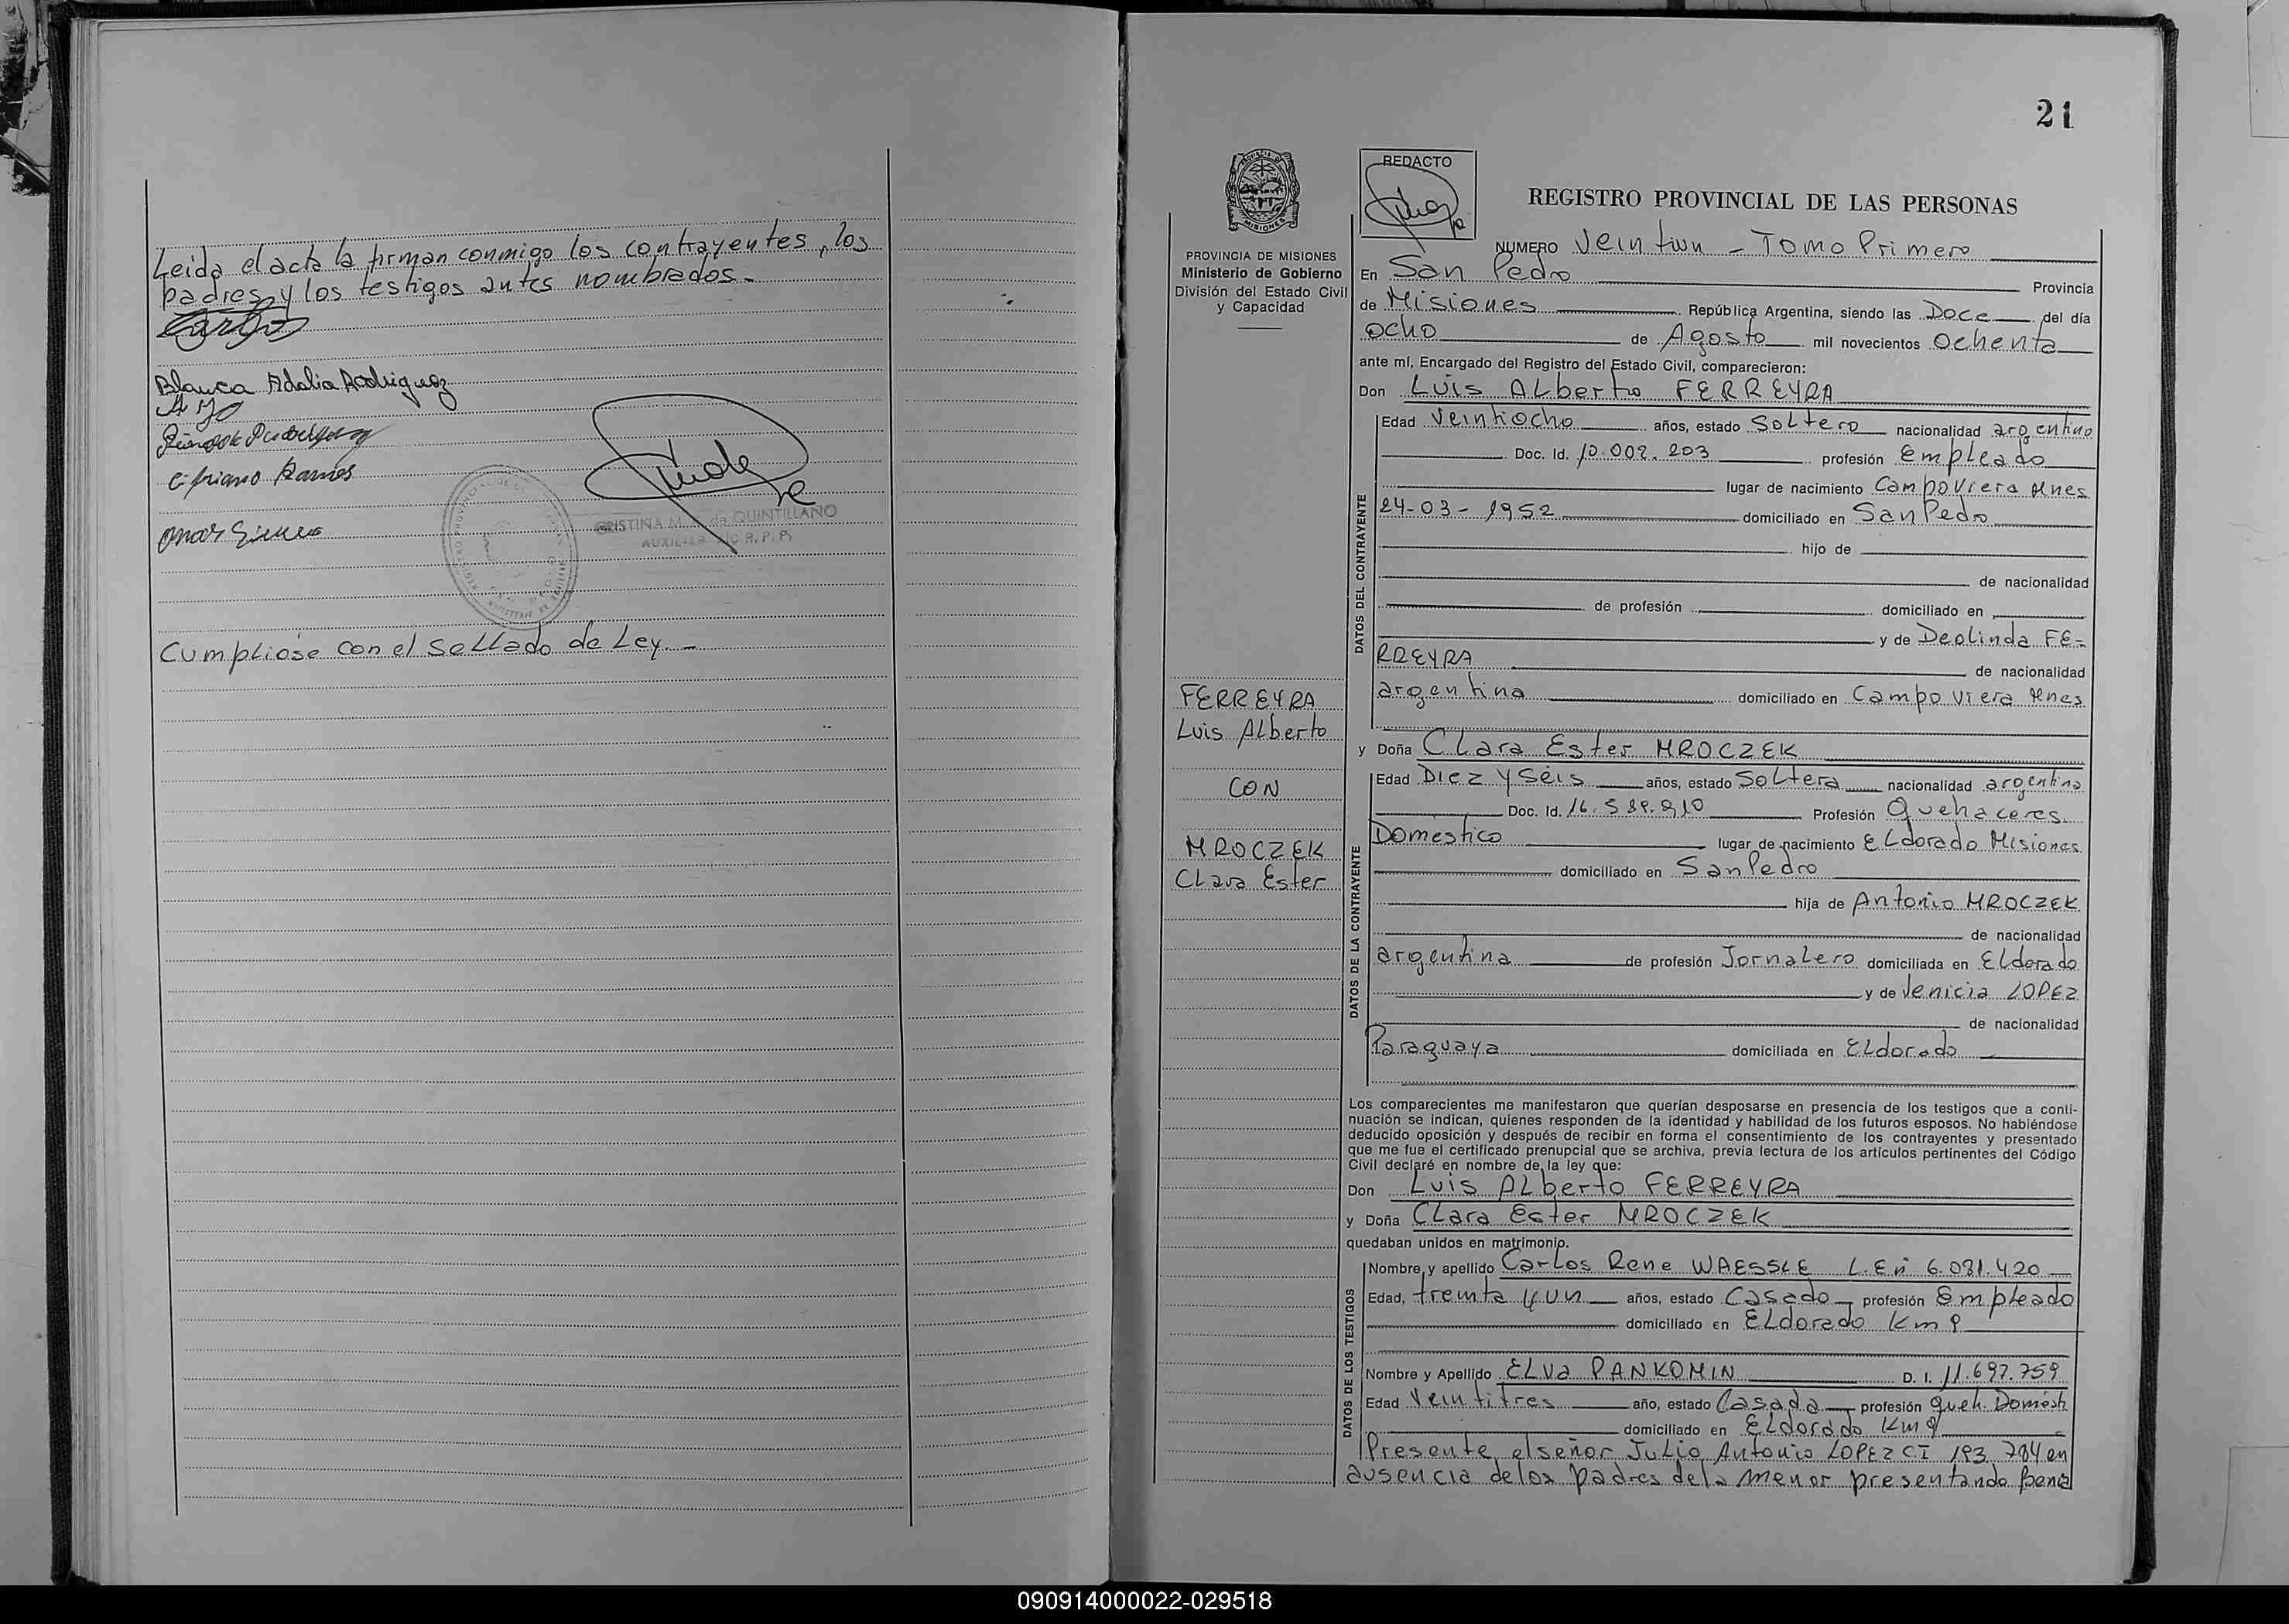 Leida el acta la firman conmigo los contrayentes, los
padres y los testigos antes nombrados.-
Blanca Adalia Rodriguez
Cipriano Ramos
Omar
CRISTINA M. de QUINTILLANO
AUXILIAR R. P. P.
Cumpliose con el sellado de Ley.-
21
PROVINCIA DE MISIONES
Ministerio de Gobierno
División del Estado Civil
y Capacidad
FERREYRA
Luis Alberto
CON
MROCZEK
Clara Ester
REDACTO
REGISTRO PROVINCIAL DE LAS PERSONAS
NUMERO Veintiun - Tomo Primero
En San Pedro Provincia
de Misiones República Argentina, siendo las Doce del día
ocho de Agosto mil novecientos ochenta
ante mí, Encargado del Registro del Estado Civil, comparecieron:
Don Luis Alberto FERREYRA
DATOS DEL CONTRAYENTE
Edad Veintiocho años, estado Soltero nacionalidad argentino
Doc. Id. 10.002.203 profesión Empleado
lugar de nacimiento Campo Viera Mnes
24-03-1952 domiciliado en San Pedro
hijo de
de nacionalidad
de profesión domiciliado en
y de Deolinda FE-
RREYRA de nacionalidad
argentina domiciliado en Campo Viera Mnes
y Doña Clara Ester MROCZEK
DATOS DE LA CONTRAYENTE
Edad Diez y Seis años, estado Soltera nacionalidad argentina
Doc. Id. Profesión Quehaceres
Domestico lugar de nacimiento Eldorado Misiones
domiciliado en San Pedro
hija de Antonio MROCZEK
de nacionalidad
argentina de profesión Jornalero domiciliada en Eldorado
y de Venicia LOPEZ
de nacionalidad
Paraguaya domiciliada en Eldorado
Los comparecientes me manifestaron que querían desposarse en presencia de los testigos que a conti-
nuación se indican, quienes responden de la identidad y habilidad de los futuros esposos. No habiéndose
deducido oposición y después de recibir en forma el consentimiento de los contrayentes y presentado
que me fue el certificado prenupcial que se archiva, previa lectura de los artículos pertinentes del Código
Civil declaré en nombre de la ley que:
Don Luis Alberto FERREYRA
y Doña Clara Ester MROCZEK
quedaban unidos en matrimonio.
DATOS DE LOS TESTIGOS
Nombre y apellido Carlos Rene WAESSLE L.E.n 6.081.420
Edad, treinta y un años, estado Casado profesión Empleado
domiciliado en Eldorado Km 9
Nombre y Apellido Elva PANKOMIN D. I. 11.697.759
Edad Veintitres año, estado Casada profesión Queh. Domést
domiciliado en Eldorado Km 9
Presente el señor Julio Antonio LOPEZ C.I 193.784 en
ausencia de los padres de la menor presentando
090914000022-029518